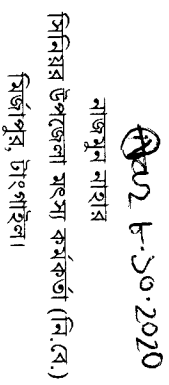 ৮.১০.২০২০
নাজমুন নাহার
সিনিয়র উপজেলা মৎস্য কর্মকর্তা (নি.বে.)
মির্জাপুর, টাংগাইল।